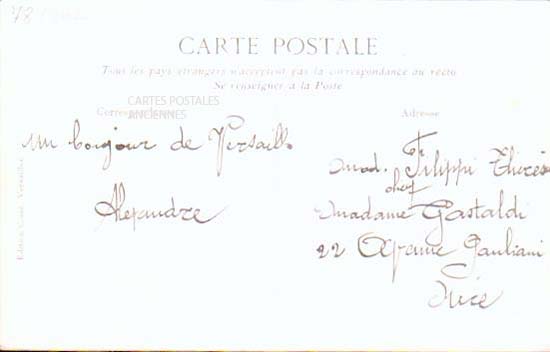 CARTE POSTALE
Tous les pays étrangers n'acceptent pas la correspondance au recto
Se renseigner à la Poste
CARTES POSTALES
ANCIENNES
Correspondance
Adresse
un bonjour de Versailles
Alexandre
Mad. Filippi Thérès
chez
Madame Gastaldi
22 Avenue Gauliani
Nice
Versailles